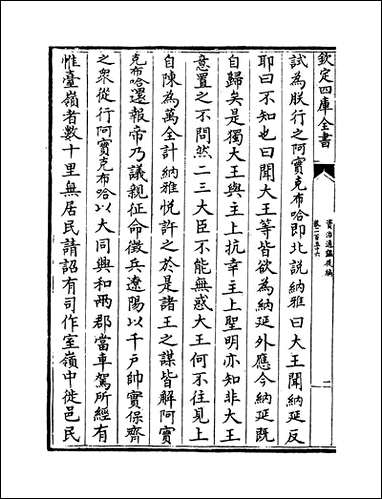 欽定四庫全書
資治通鑑後編
卷一百五十六
二
試為朕行之阿實克布哈即北説納雅曰大王聞納延反
耶曰不知也曰聞大王等皆欲為納延外應今納延既
自歸矣是獨大王與主上抗幸主上聖明亦知非大王
意置之不問然二三大臣不能無惑大王何不往見上
自陳為萬全計納雅悦許之於是諸王之謀皆解阿實
克布哈還報帝乃議親征命徴兵遼陽以千戸帥實保齊
之衆從行阿實克布哈以大同興和兩郡當車駕所經有
惟臺嶺者數十里無居民請詔有司作室嶺中徙邑民